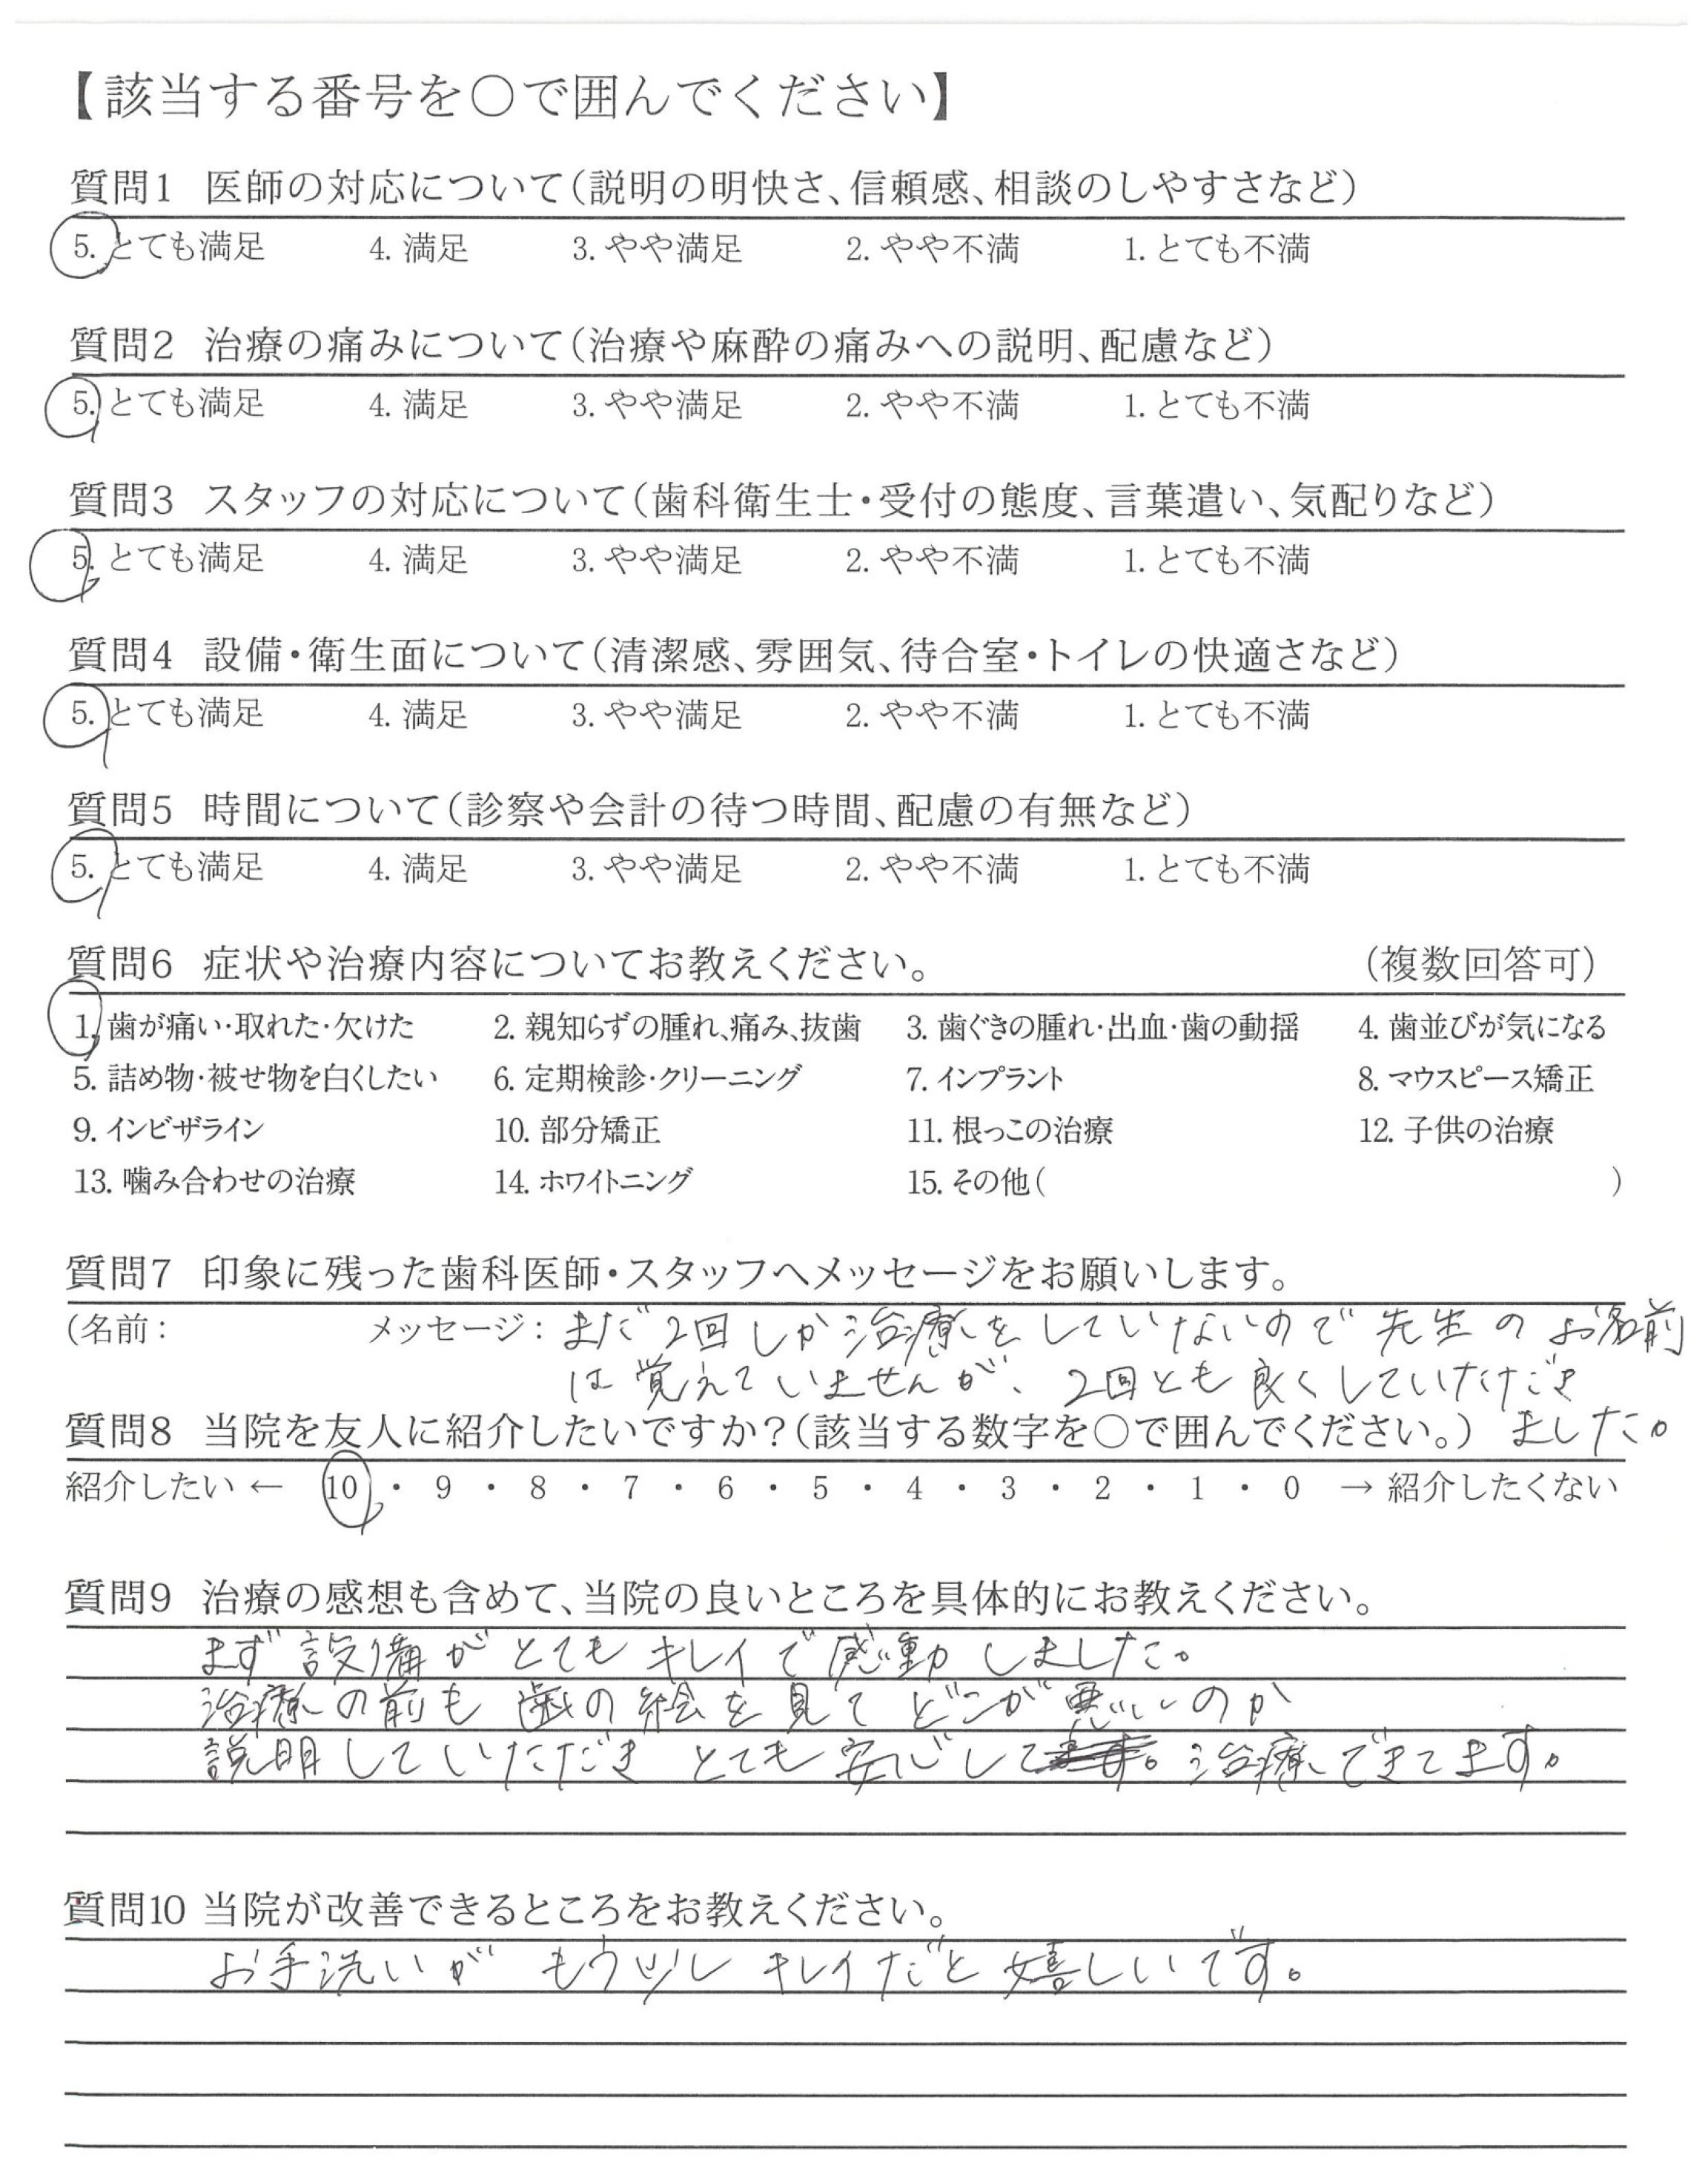 【該当する番号を○で囲んでください】
質問1 医師の対応について(説明の明快さ、信頼感、相談のしやすさなど)
5. とても満足 4. 満足 3. やや満足 2. やや不満 1. とても不満
質問2 治療の痛みについて(治療や麻酔の痛みへの説明、配慮など)
5. とても満足 4. 満足 3. やや満足 2. やや不満 1. とても不満
質問3 スタッフの対応について(歯科衛生士・受付の態度、言葉遣い、気配りなど)
5. とても満足 4. 満足 3. やや満足 2. やや不満 1. とても不満
質問4 設備・衛生面について(清潔感、雰囲気、待合室・トイレの快適さなど)
5. とても満足 4. 満足 3. やや満足 2. やや不満 1. とても不満
質問5 時間について(診察や会計の待つ時間、配慮の有無など)
5. とても満足 4. 満足 3. やや満足 2. やや不満 1. とても不満
質問6 症状や治療内容についてお教えください。 (複数回答可)
1. 歯が痛い・取れた・欠けた 2. 親知らずの腫れ、痛み、抜歯 3. 歯ぐきの腫れ・出血・歯の動揺 4. 歯並びが気になる
5. 詰め物・被せ物を白くしたい 6. 定期検診・クリーニング 7. インプラント 8. マウスピース矯正
9. インビザライン 10. 部分矯正 11. 根っこの治療 12. 子供の治療
13. 噛み合わせの治療 14. ホワイトニング 15. その他( )
質問7 印象に残った歯科医師・スタッフへメッセージをお願いします。
(名前: メッセージ: まだ2回しか治療をしていないので先生のお名前
は覚えていませんが、2回とも良くしていただき
質問8 当院を友人に紹介したいですか?(該当する数字を○で囲んでください。) ました。
紹介したい ← 10 ・ 9 ・ 8 ・ 7 ・ 6 ・ 5 ・ 4 ・ 3 ・ 2 ・ 1 ・ 0 → 紹介したくない
質問9 治療の感想も含めて、当院の良いところを具体的にお教えください。
まず設備がとてもキレイで感動しました。
治療の前も歯の絵を見てどこが悪いのか
説明していただきとても安心して治療できてます。
質問10 当院が改善できるところをお教えください。
お手洗いがもう少しキレイだと嬉しいです。